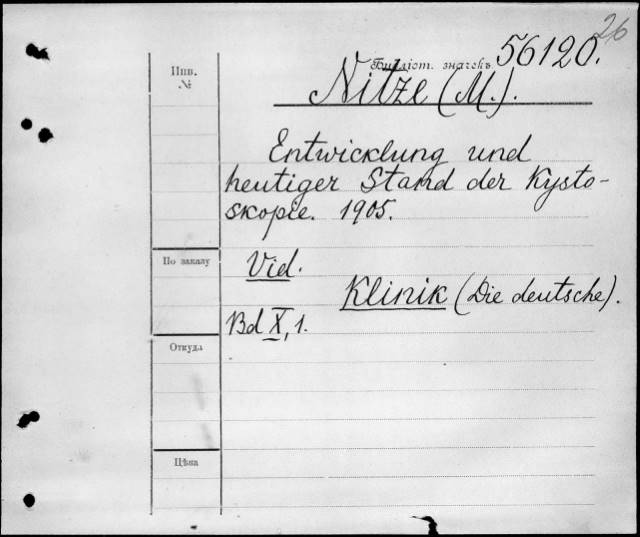 26
Инв.
№
Библіот. значекъ 56120.
Nitze (M.).
Entwicklung und
heutiger Stand der Kysto-
skopie. 1905.
По заказу
Vid.
Klinik (Die deutsche).
Bd X, 1.
Откуда
Цѣна